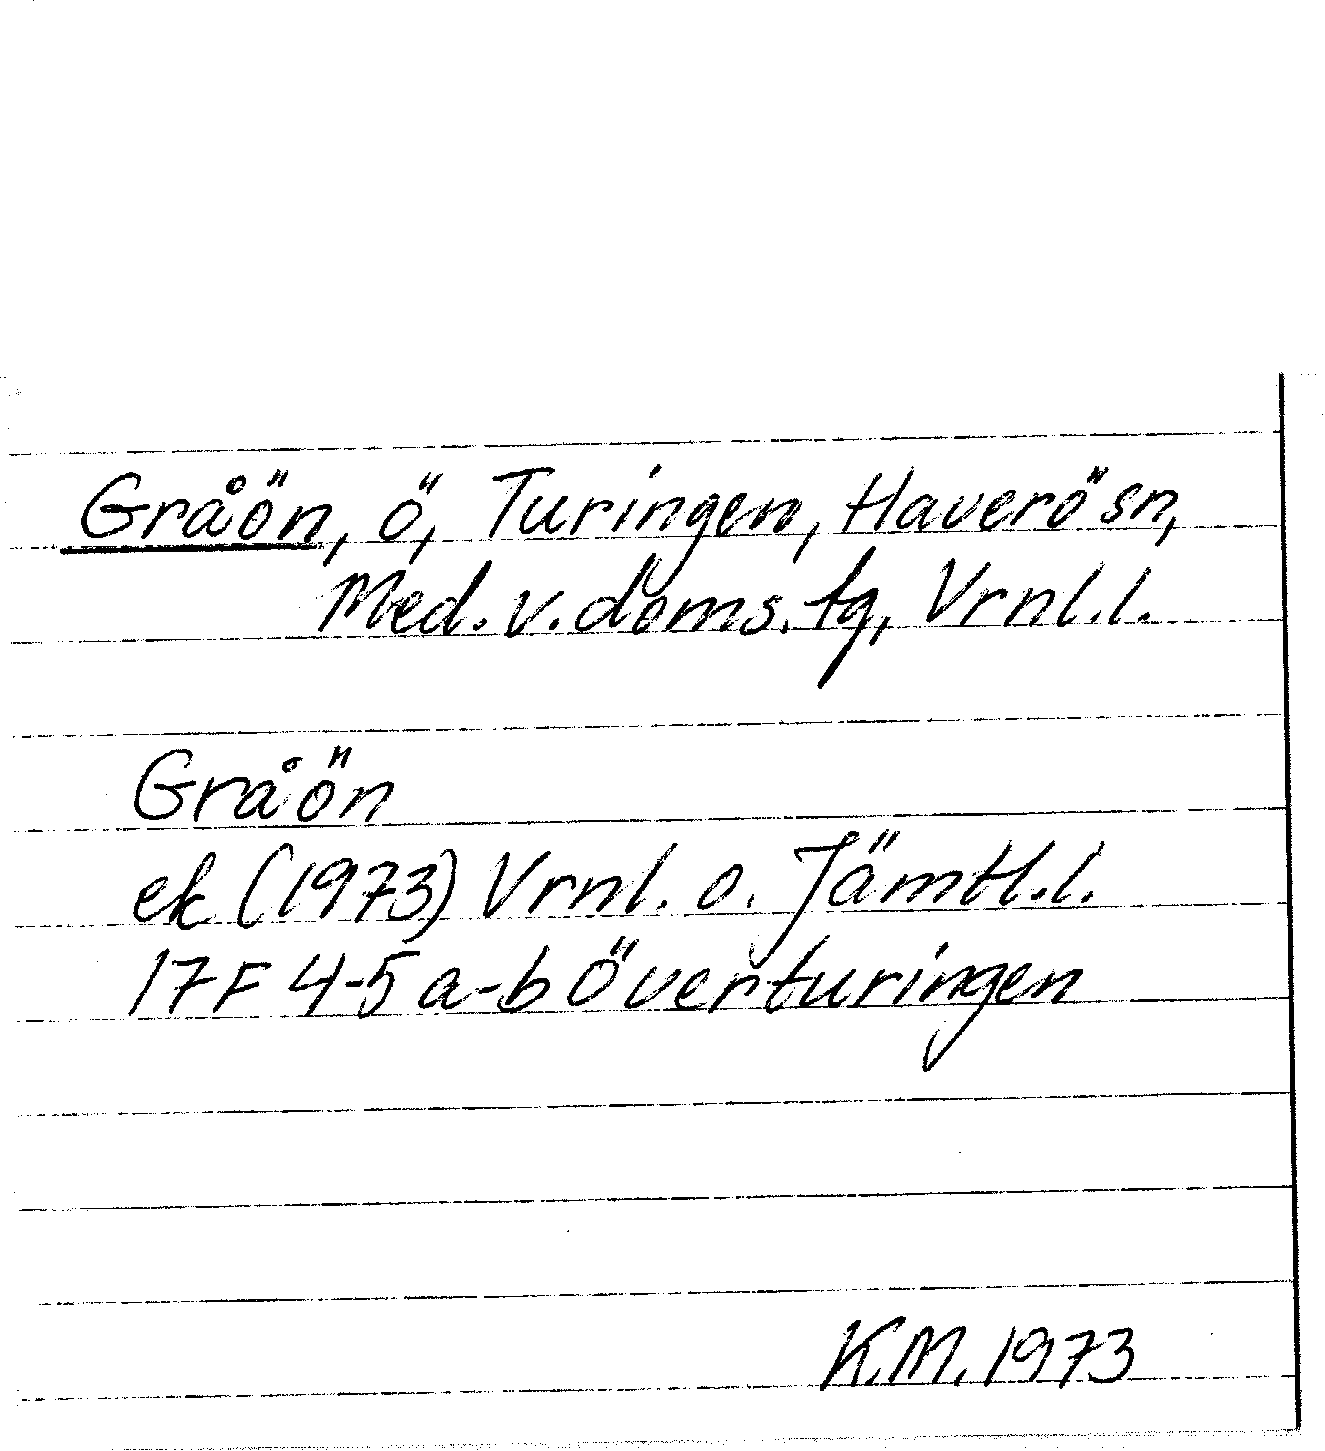 Gråön, ö, Turingen, Haverö sn,
Med. v. doms. tg, Vrnl. l.
Gråön
ek (1973) Vrnl. o. Jämtl. l.
17F 4-5 a-b Överturingen
K.M. 1973